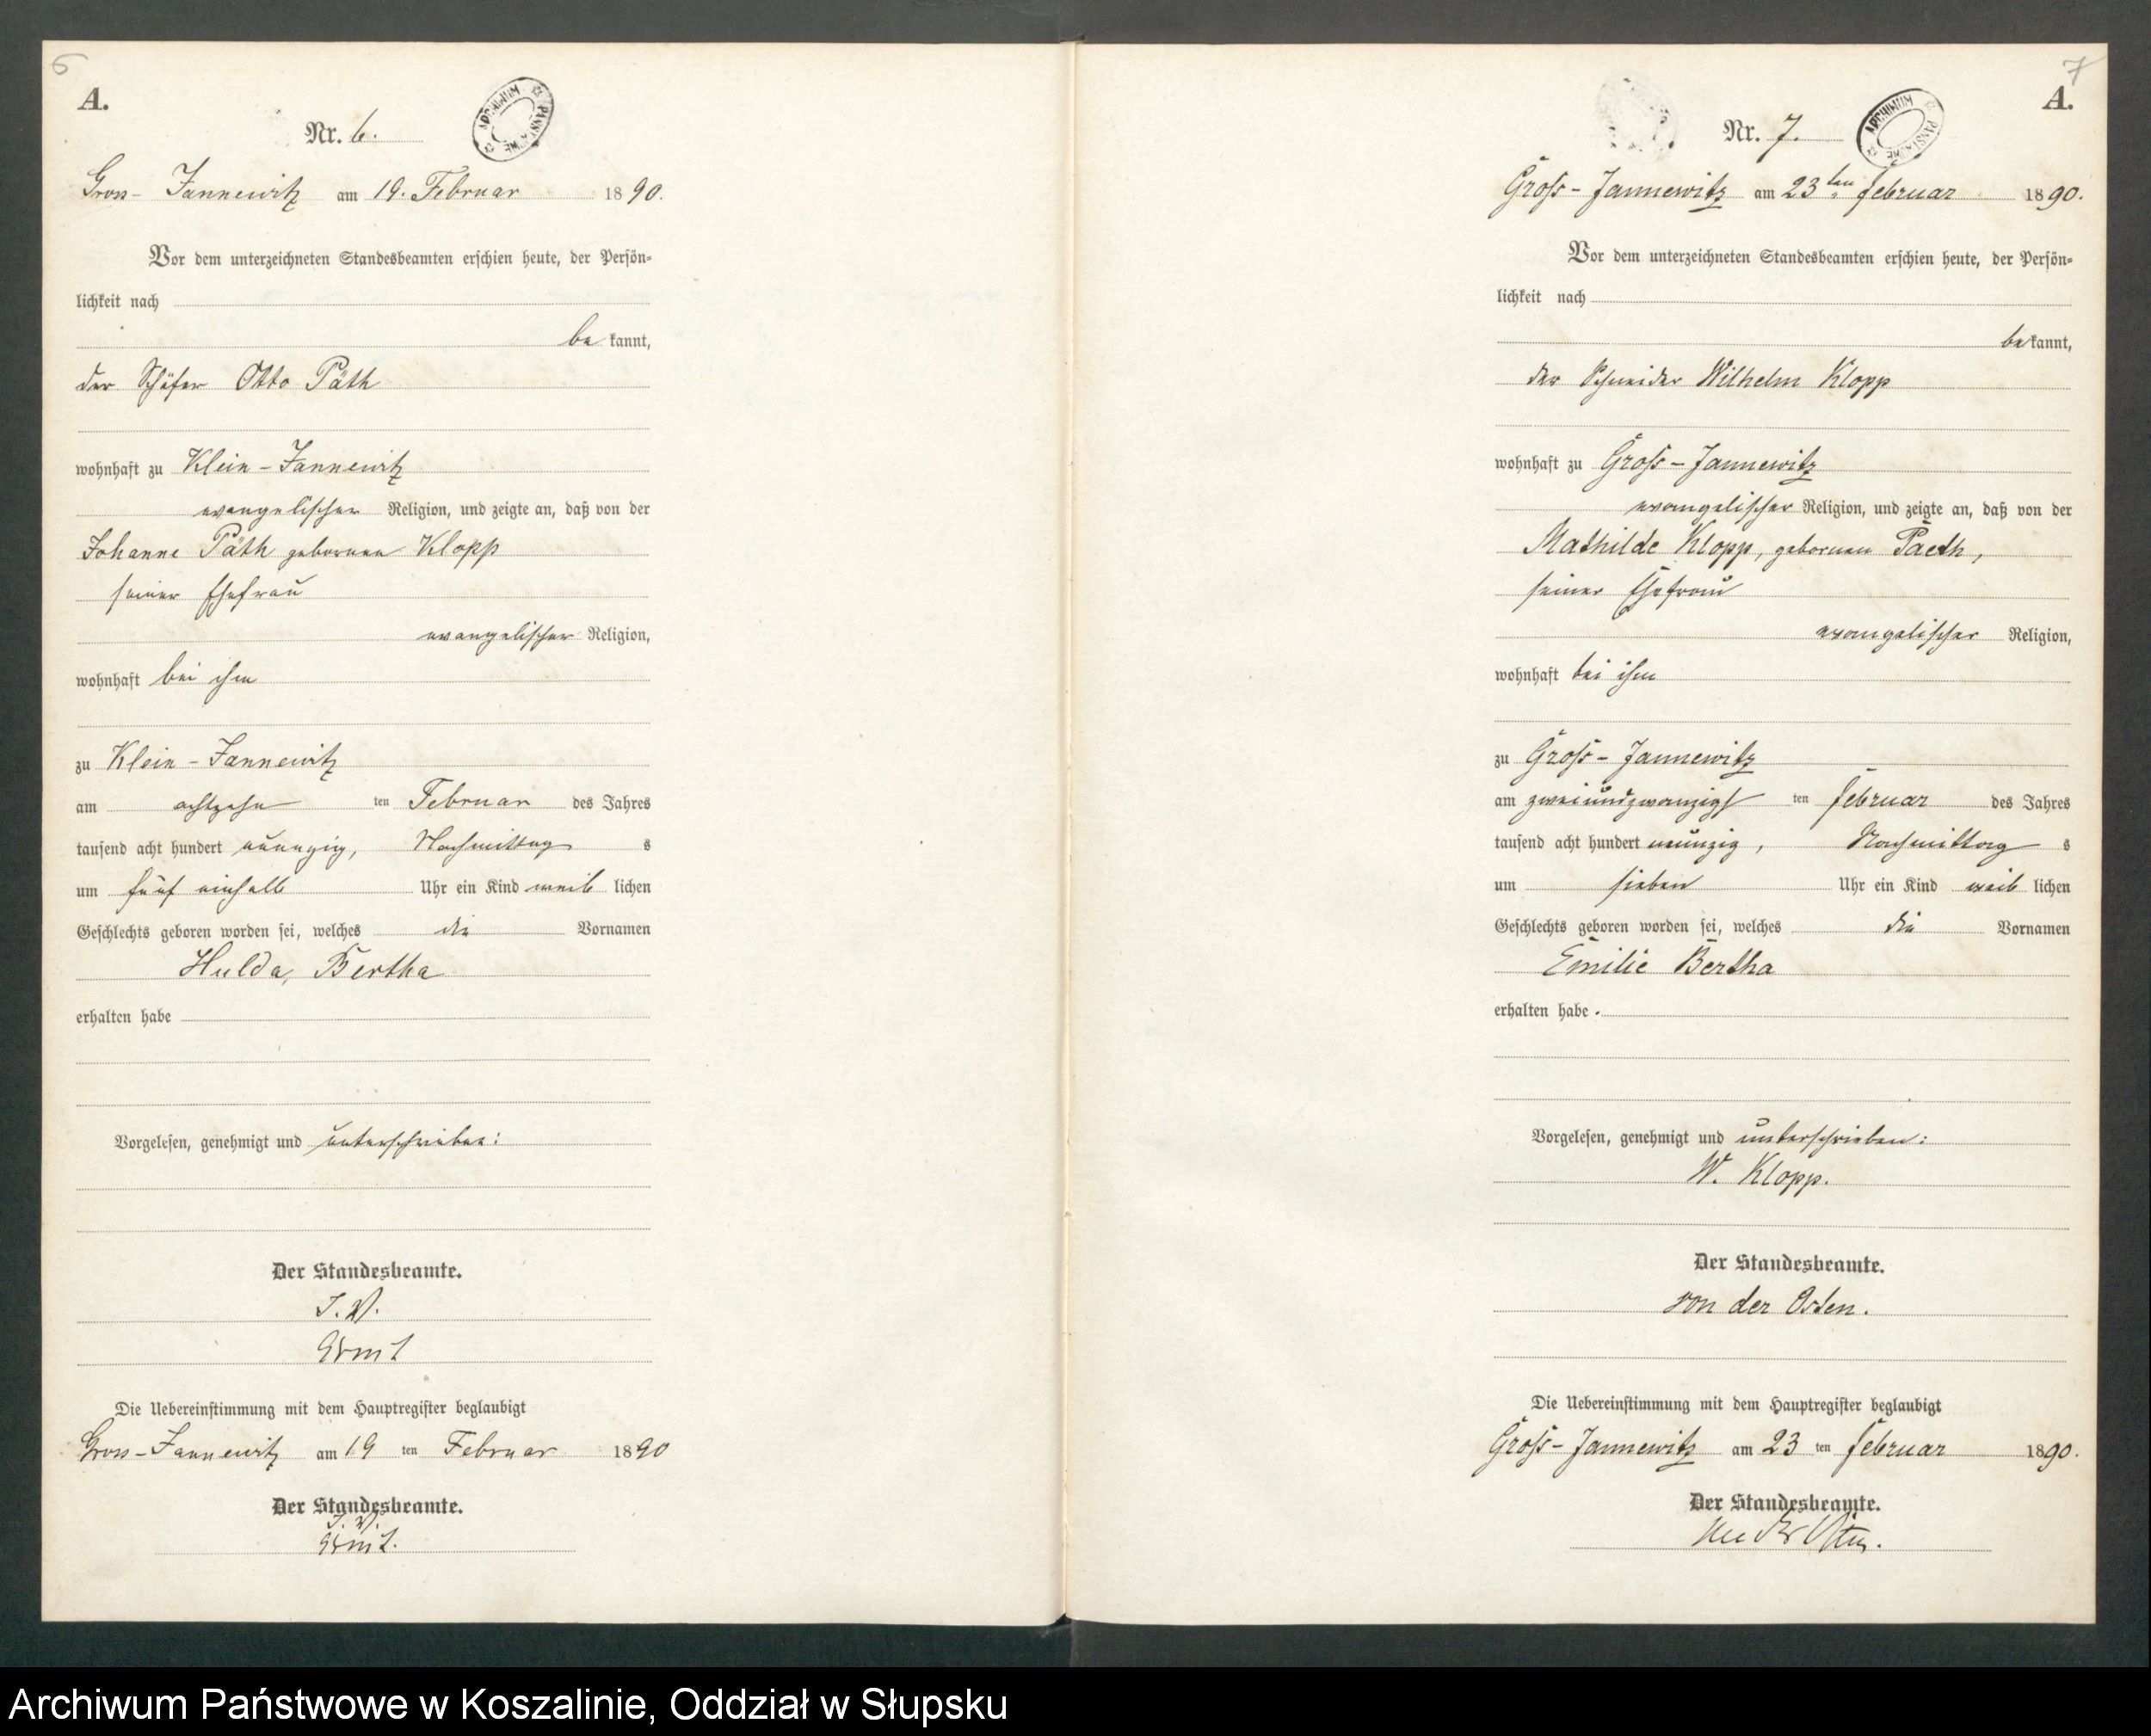 6
A.
Nr. 6.
ARCHIWUM PAŃSTWOWE
Gross-Jannewitz am 19. Februar 1890.
Vor dem unterzeichneten Standesbeamten erschien heute, der Persön-
lichkeit nach
bekannt,
der Schäfer Otto Päth
wohnhaft zu Klein-Jannewitz
evangelischer Religion, und zeigte an, daß von der
Johanne Päth geborenen Klopp
seiner Ehefrau
evangelischer Religion,
wohnhaft bei ihm
zu Klein-Jannewitz
am achtzehn ten Februar des Jahres
tausend acht hundert neunzig, Nachmittags
um fünf einhalb Uhr ein Kind weiblichen
Geschlechts geboren worden sei, welches die Vornamen
Hulda, Bertha
erhalten habe
Vorgelesen, genehmigt und unterschrieben:
Der Standesbeamte.
I. V.
Die Uebereinstimmung mit dem Hauptregister beglaubigt
Gross-Jannewitz am 19 ten Februar 1890
Der Standesbeamte.
I. V.
7
A.
Nr. 7.
ARCHIWUM PAŃSTWOWE
Groß-Jannewitz am 23ten Februar 1890.
Vor dem unterzeichneten Standesbeamten erschien heute, der Persön-
lichkeit nach
bekannt,
der Schneider Wilhelm Klopp
wohnhaft zu Groß-Jannewitz
evangelischer Religion, und zeigte an, daß von der
Mathilde Klopp, geborenen Paeth,
seiner Ehefrau
evangelischer Religion,
wohnhaft bei ihm
zu Groß-Jannewitz
am zweiundzwanzigst ten Februar des Jahres
tausend acht hundert neunzig, Nachmittags
um sieben Uhr ein Kind weiblichen
Geschlechts geboren worden sei, welches die Vornamen
Emilie Bertha
erhalten habe.
Vorgelesen, genehmigt und unterschrieben:
W. Klopp.
Der Standesbeamte.
von der Osten.
Die Uebereinstimmung mit dem Hauptregister beglaubigt
Groß-Jannewitz am 23 ten Februar 1890.
Der Standesbeamte.
von der Osten.
Archiwum Państwowe w Koszalinie, Oddział w Słupsku